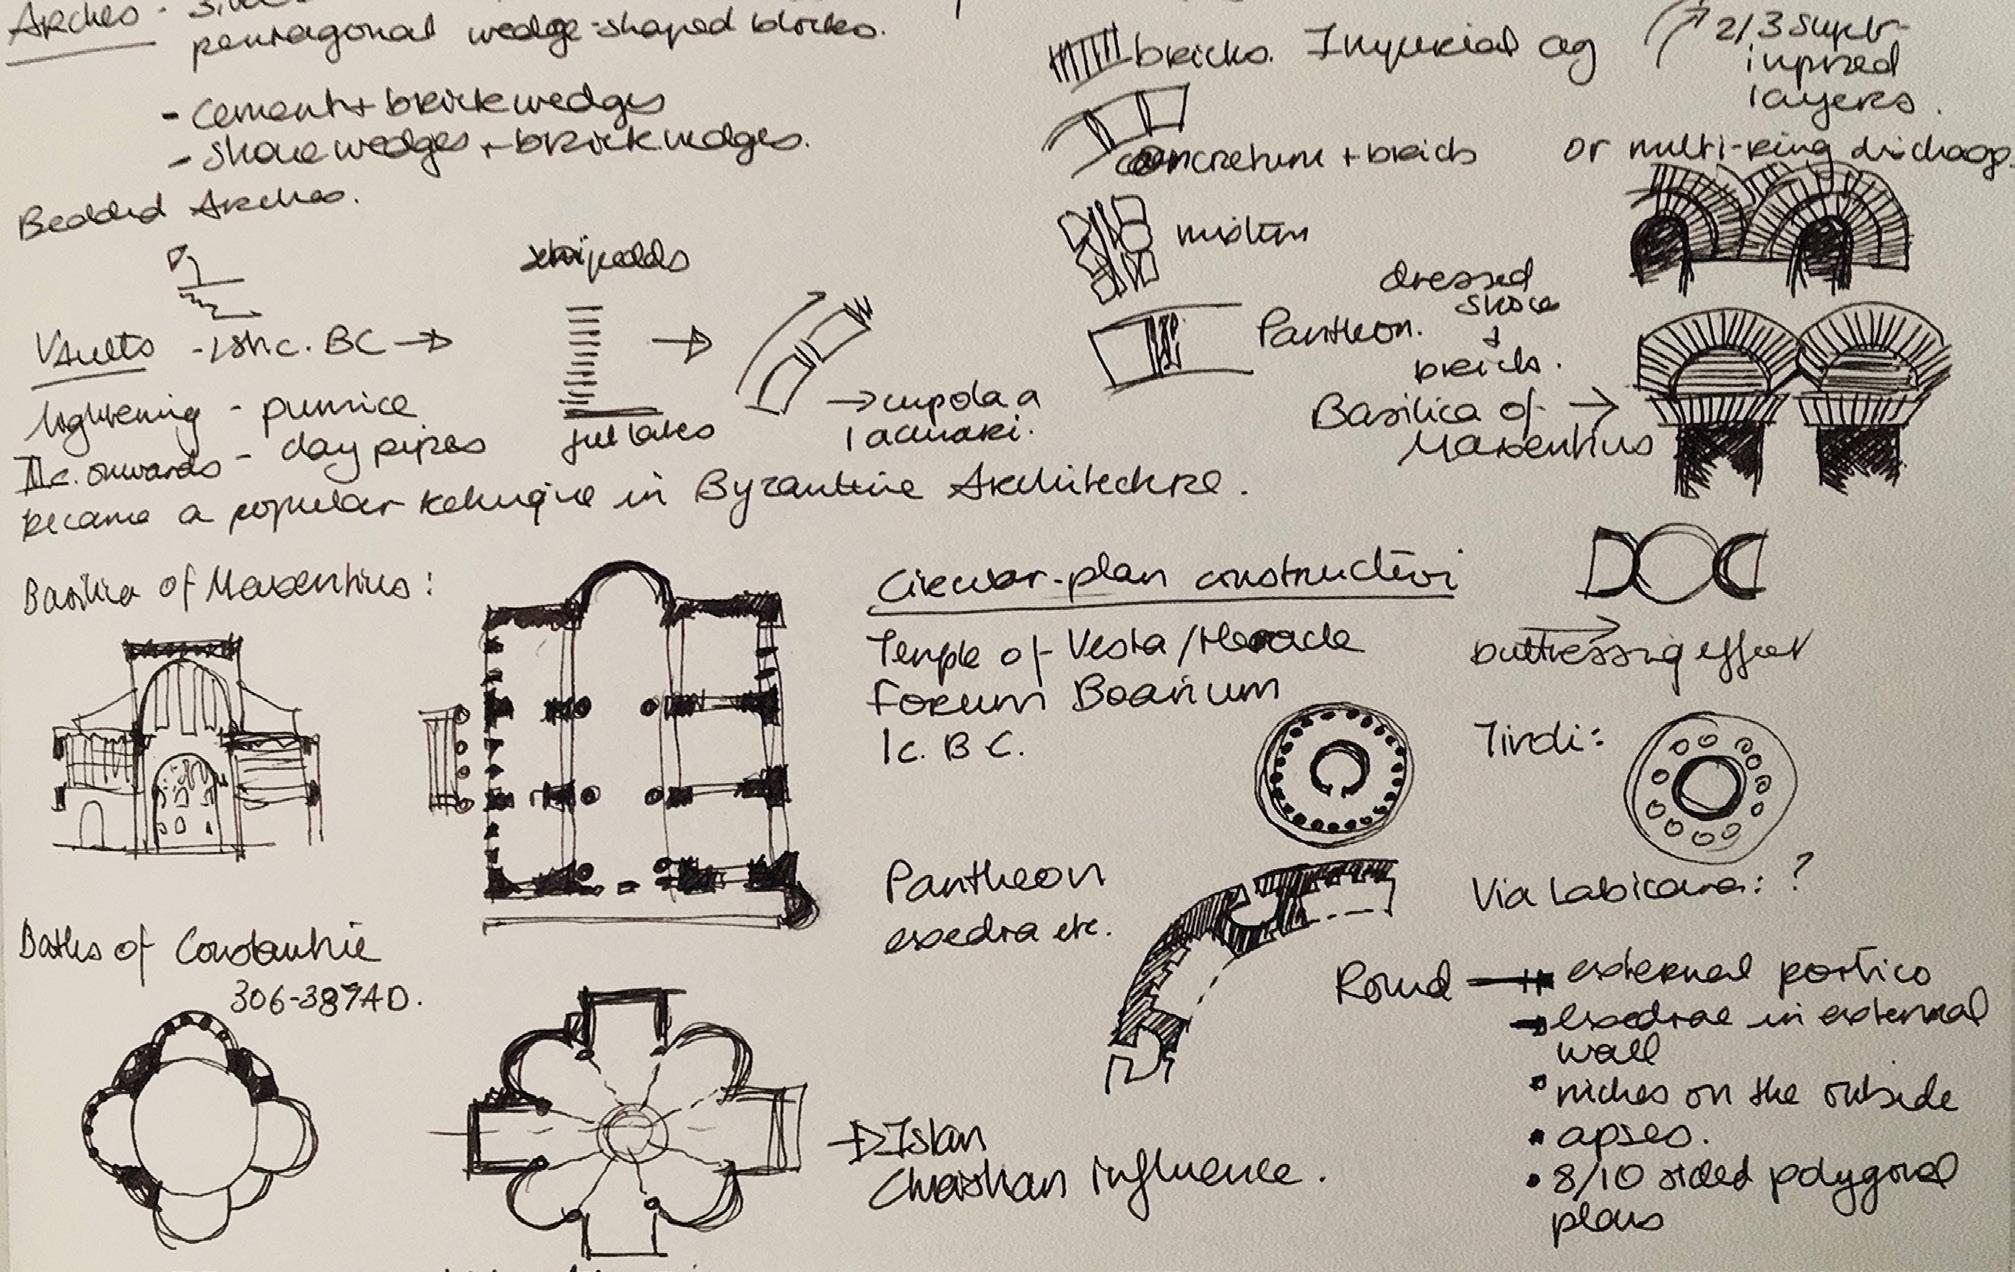 Arches -
pentagonal wedge-shaped blocks.
- cement + brick wedges
- stone wedges + brick wedges.
Bedded Arches.
Vaults - 1st c. BC →
lightening - pumice
clay pipes
II c. onwards -
became a popular technique in Byzantine Architecture.
→ cupola a
lacunari.
bricks. Imperial ag
2/3 super-
imposed
layers.
concretum + brick
or multi-ring
mixtum
Pantheon.
dressed
stone
+
brick.
Basilica of →
Maxentius
Basilica of Maxentius:
Baths of Constantine
306-337AD.
Circular-plan
Temple of Vesta/Heracle
Forum Boarium
1c. B C.
Pantheon
exedra etc.
→ Islam
Christian influence.
buttressing effect
Tivoli:
Via Labicana: ?
Round → external portico
→ exedrae in external
wall
• niches on the outside
• apses.
• 8/10 sided polygonal
plans